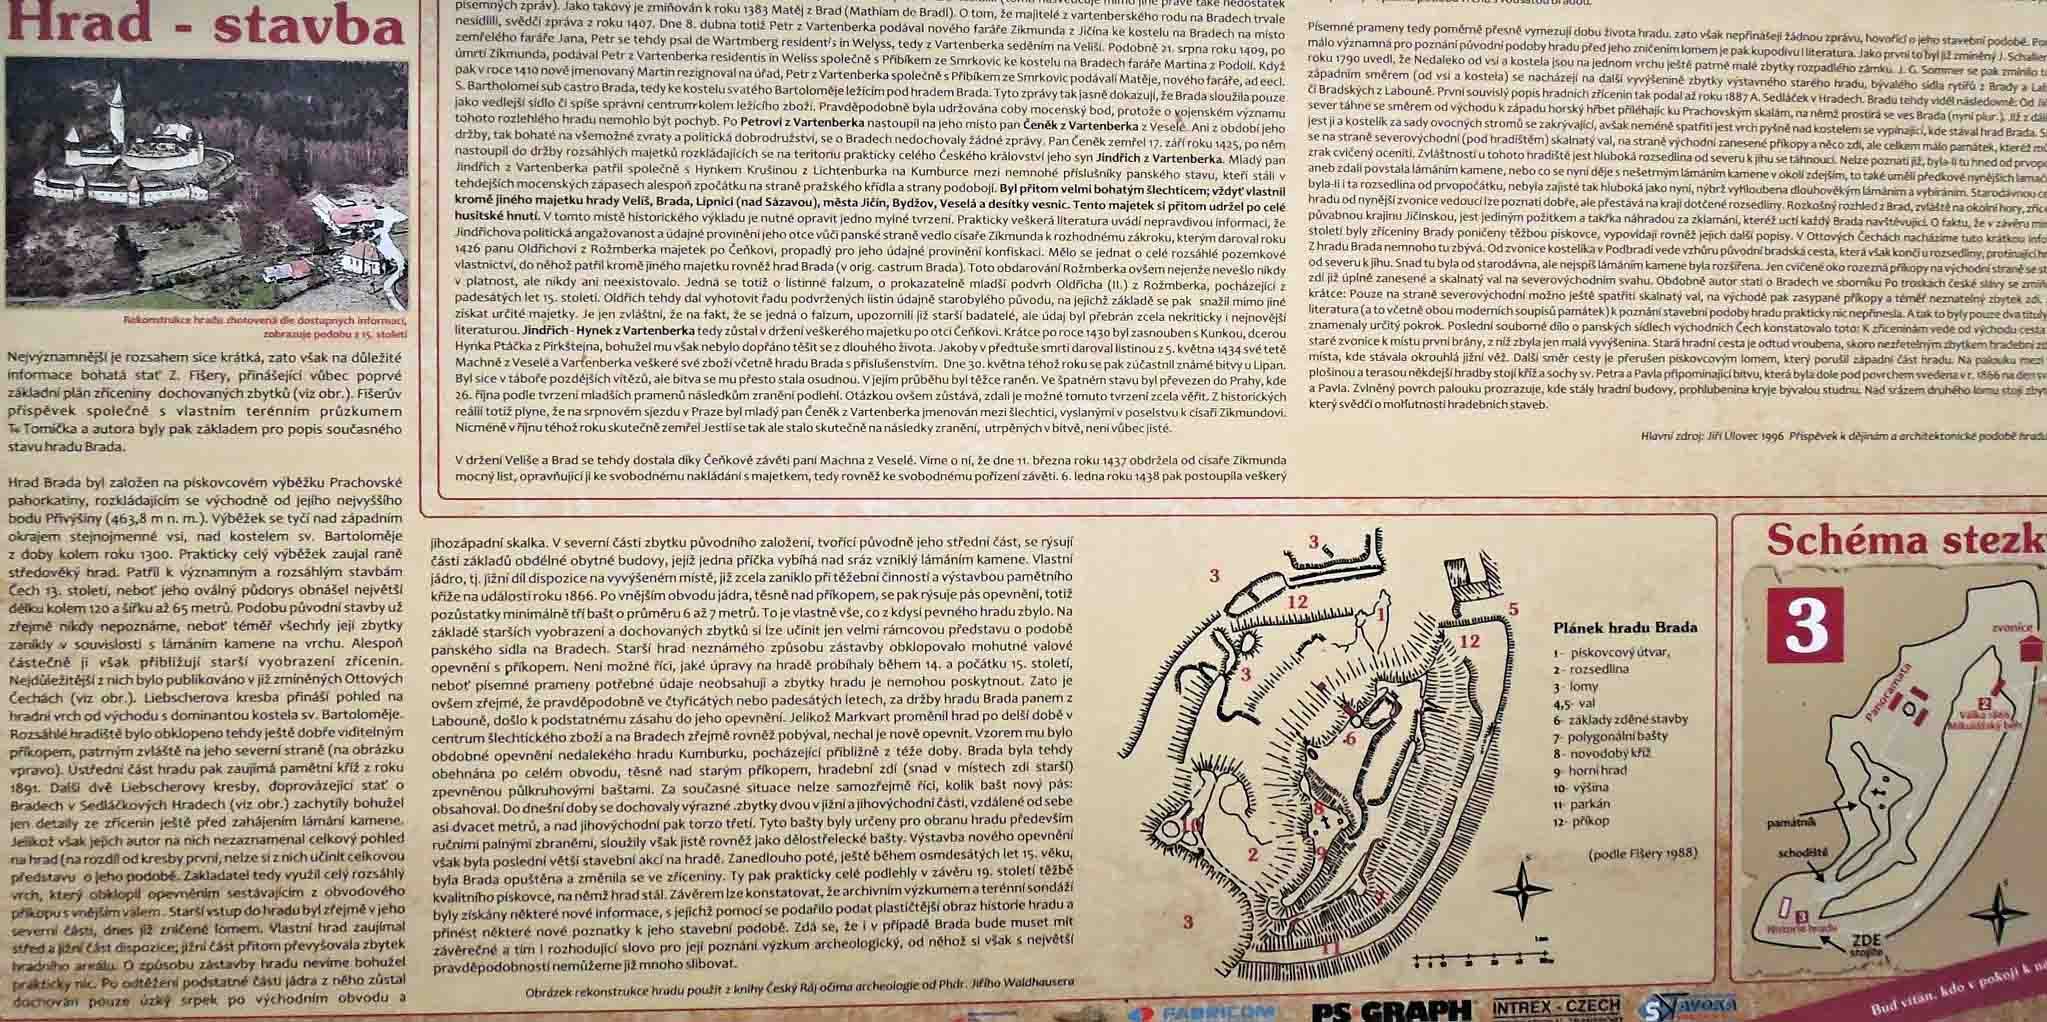 Hrad - stavba
Rekonstrukce hradu zhotovená dle dostupných informací,
zobrazuje podobu z 15. století
Nejvýznamnější je rozsahem sice krátká, zato však na důležité
informace bohatá stať Z. Fišery, přinášející vůbec poprvé
základní plán zříceniny dochovaných zbytků (viz obr.). Fišerův
příspěvek společně s vlastním terénním průzkumem
Tomíčka a autora byly pak základem pro popis současného
stavu hradu Brada.
Hrad Brada byl založen na pískovcovém výběžku Prachovské
pahorkatiny, rozkládajícím se východně od jejího nejvyššího
bodu Přivýšiny (463,8 m n. m.). Výběžek se tyčí nad západním
okrajem stejnojmenné vsi, nad kostelem sv. Bartoloměje
z doby kolem roku 1300. Prakticky celý výběžek zaujal raně
středověký hrad. Patřil k významným a rozsáhlým stavbám
Čech 13. století, neboť jeho oválný půdorys obnášel největší
délku kolem 120 a šířku až 65 metrů. Podobu původní stavby už
zřejmě nikdy nepoznáme, neboť téměř všechny její zbytky
zanikly v souvislosti s lámáním kamene na vrchu. Alespoň
částečně ji však přibližují starší vyobrazení zřícenin.
Nejdůležitější z nich bylo publikováno v již zmíněných Ottových
Čechách (viz obr.). Liebscherova kresba přináší pohled na
hradní vrch od východu s dominantou kostela sv. Bartoloměje.
Rozsáhlé hradiště bylo obklopeno tehdy ještě dobře viditelným
příkopem, patrným zvláště na jeho severní straně (na obrázku
vpravo). Ústřední část hradu pak zaujímá pamětní kříž z roku
1891. Další dvě Liebscherovy kresby, doprovázející stať o
Bradech v Sedláčkových Hradech (viz obr.) zachytily bohužel
jen detaily ze zřícenin ještě před zahájením lámání kamene.
Jelikož však jejich autor na nich nezaznamenal celkový pohled
na hrad (na rozdíl od kresby první, nelze si z nich učinit celkovou
představu o jeho podobě. Zakladatel tedy využil celý rozsáhlý
vrch, který obklopil opevněním sestávajícím z obvodového
příkopu s vnějším valem. Starší vstup do hradu byl zřejmě v jeho
severní části, dnes již zničené lomem. Vlastní hrad zaujímal
střed a jižní část dispozice; jižní část přitom převyšovala zbytek
hradního areálu. O způsobu zástavby hradu nevíme bohužel
prakticky nic. Po odtěžení podstatné části jádra z něho zůstal
dochován pouze úzký srpek po východním obvodu a
písemných zpráv). Jako takový je zmiňován k roku 1383 Matěj z Brad (Mathiam de Bradi). O tom, že majitelé z vartenberského rodu na Bradech trvale
nesídlili, svědčí zpráva z roku 1407. Dne 8. dubna totiž Petr z Vartenberka podával nového faráře Zikmunda z Jičína ke kostelu na Bradech na místo
zemřelého faráře Jana, Petr se tehdy psal de Wartmberg residentis in Welyss, tedy z Vartenberka seděním na Veliši. Podobně 21. srpna roku 1409, po
úmrtí Zikmunda, podával Petr z Vartenberka residentis in Weliss společně s Přibíkem ze Smrkovic ke kostelu na Bradech faráře Martina z Podolí. Když
pak v roce 1410 nově jmenovaný Martin rezignoval na úřad, Petr z Vartenberka společně s Přibíkem ze Smrkovic podávali Matěje, nového faráře, ad eccl.
S. Bartholomei sub castro Brada, tedy ke kostelu svatého Bartoloměje ležícím pod hradem Brada. Tyto zprávy tak jasně dokazují, že Brada sloužila pouze
jako vedlejší sídlo či spíše správní centrum kolem ležícího zboží. Pravděpodobně byla udržována coby mocenský bod, protože o vojenském významu
tohoto rozlehlého hradu nemohlo být pochyb. Po Petrovi z Vartenberka nastoupil na jeho místo pan Čeněk z Vartenberka z Veselé. Ani z období jeho
držby, tak bohaté na všemožné zvraty a politická dobrodružství, se o Bradech nedochovaly žádné zprávy. Pan Čeněk zemřel 17. září roku 1425, po něm
nastoupil do držby rozsáhlých majetků rozkládajících se na teritoriu prakticky celého Českého království jeho syn Jindřich z Vartenberka. Mladý pan
Jindřich z Vartenberka patřil společně s Hynkem Krušinou z Lichtenburka na Kumburce mezi nemnohé příslušníky panského stavu, kteří stáli v
tehdejších mocenských zápasech alespoň zpočátku na straně pražského křídla a strany podobojí. Byl přitom velmi bohatým šlechticem; vždyť vlastnil
kromě jiného majetku hrady Veliš, Brada, Lipnici (nad Sázavou), města Jičín, Bydžov, Veselá a desítky vesnic. Tento majetek si přitom udržel po celé
husitské hnutí. V tomto místě historického výkladu je nutné opravit jedno mylné tvrzení. Prakticky veškerá literatura uvádí nepravdivou informaci, že
Jindřichova politická angažovanost a údajné provinění jeho otce vůči panské straně vedlo císaře Zikmunda k rozhodnému zákroku, kterým daroval roku
1426 panu Oldřichovi z Rožmberka majetek po Čeňkovi, propadlý pro jeho údajné provinění konfiskaci. Mělo se jednat o celé rozsáhlé pozemkové
vlastnictví, do něhož patřil kromě jiného majetku rovněž hrad Brada (v orig. castrum Brada). Toto obdarování Rožmberka ovšem nejenže nevešlo nikdy
v platnost, ale nikdy ani neexistovalo. Jedná se totiž o listinné falzum, o prokazatelně mladší podvrh Oldřicha (II.) z Rožmberka, pocházející z
padesátých let 15. století. Oldřich tehdy dal vyhotovit řadu podvržených listin údajně starobylého původu, na jejichž základě se pak snažil mimo jiné
získat určité majetky. Je jen zvláštní, že na fakt, že se jedná o falzum, upozornili již starší badatelé, ale údaj byl přebrán zcela nekriticky i nejnovější
literaturou. Jindřich - Hynek z Vartenberka tedy zůstal v držení veškerého majetku po otci Čeňkovi. Krátce po roce 1430 byl zasnouben s Kunkou, dcerou
Hynka Ptáčka z Pirkštejna, bohužel mu však nebylo dopřáno těšit se z dlouhého života. Jakoby v předtuše smrti daroval listinou z 5. května 1434 své tetě
Machně z Veselé a Vartenberka veškeré své zboží včetně hradu Brada s příslušenstvím. Dne 30. května téhož roku se pak zúčastnil známé bitvy u Lipan.
Byl sice v táboře pozdějších vítězů, ale bitva se mu přesto stala osudnou. V jejím průběhu byl těžce raněn. Ve špatném stavu byl převezen do Prahy, kde
26. října podle tvrzení mladších pramenů následkům zranění podlehl. Otázkou ovšem zůstává, zdali je možné tomuto tvrzení zcela věřit. Z historických
reálií totiž plyne, že na srpnovém sjezdu v Praze byl mladý pan Čeněk z Vartenberka jmenován mezi šlechtici, vyslanými v poselstvu k císaři Zikmundovi.
Nicméně v říjnu téhož roku skutečně zemřel Jestli se tak ale stalo skutečně na následky zranění, utrpěných v bitvě, není vůbec jisté.
V držení Veliše a Brad se tehdy dostala díky Čeňkově závěti paní Machna z Veselé. Víme o ní, že dne 11. března roku 1437 obdržela od císaře Zikmunda
mocný list, opravňující ji ke svobodnému nakládání s majetkem, tedy rovněž ke svobodnému pořízení závěti. 6. ledna roku 1438 pak postoupila veškerý
Písemné prameny tedy poměrně přesně vymezují dobu života hradu, zato však nepřinášejí žádnou zprávu, hovořící o jeho stavební podobě.
málo významná pro poznání původní podoby hradu před jeho zničením lomem je pak kupodivu i literatura. Jako první to byl již zmíněný J. Schaller
roku 1790 uvedl, že Nedaleko od vsi a kostela jsou na jednom vrchu ještě patrné malé zbytky rozpadlého zámku. J. G. Sommer se pak zmínil
západním směrem (od vsi a kostela) se nacházejí na další vyvýšenině zbytky výstavného starého hradu, bývalého sídla rytířů z Brady a
či Bradských z Labouně. První souvislý popis hradních zřícenin tak podal až roku 1887 A. Sedláček v Hradech. Bradu tehdy viděl následovně: Od
sever táhne se směrem od východu k západu horský hřbet přiléhajíc ku Prachovským skalám, na němž prostírá se ves Brada (nyní plur.). Již z
jest ji a kostelík za sady ovocných stromů se zakrývající, avšak neméně spatřiti jest vrch pyšně nad kostelem se vypínající, kde stával hrad Brada.
se na straně severovýchodní (pod hradištěm) skalnatý val, na straně východní zanesené příkopy a něco zdí, ale celkem málo památek, kteréž
zrak cvičený oceniti. Zvláštností u tohoto hradiště jest hluboká rozsedlina od severu k jihu se táhnoucí. Nelze poznati již, byla-li tu hned od
aneb zdali povstala lámání kamene, nebo co se nyní děje s nešetrným lámáním kamene v okolí zdejším, to také uměli předkové nynějších
byla-li i ta rozsedlina od prvopočátku, nebyla zajisté tak hluboká jako nyní, nýbrž vyhloubena dlouhověkým lámáním a vybíráním. Starodávnou
hradu od nynější zvonice vedoucí lze poznati dobře, ale přestává na kraji dotčené rozsedliny. Rozkošný rozhled z Brad, zvláště na okolní hory,
půvabnou krajinu Jičínskou, jest jediným požitkem a takřka náhradou za zklamání, kteréž ucítí každý Brada navštěvující. O faktu, že v závěru
století byly zříceniny Brady poničeny těžbou pískovce, vypovídají rovněž jejich další popisy. V Ottových Čechách nacházíme tuto krátkou
Z hradu Brada nemnoho tu zbývá. Od zvonice kostelíka v Podbradí vede vzhůru původní bradská cesta, která však končí u rozsedliny, protínající
od severu k jihu. Snad tu byla od starodávna, ale nejspíš lámáním kamene byla rozšířena. Jen cvičené oko rozezná příkopy na východní straně se
zdí již úplně zanesené a skalnatý val na severovýchodním svahu. Obdobně autor stati o Bradech ve sborníku Po troskách české slávy se
krátce: Pouze na straně severovýchodní možno ještě spatřiti skalnatý val, na východě pak zasypané příkopy a téměř neznatelný zbytek zdi.
literatura (a to včetně obou moderních soupisů památek) k poznání stavební podoby hradu prakticky nic nepřinesla. A tak to byly pouze dva tituly
znamenaly určitý pokrok. Poslední souborné dílo o panských sídlech východních Čech konstatovalo toto: K zříceninám vede od východu cesta
staré zvonice k místu první brány, z níž zbyla jen malá vyvýšenina. Stará hradní cesta je odtud vroubena, skoro nezřetelným zbytkem hradební
místa, kde stávala okrouhlá jižní věž. Další směr cesty je přerušen pískovcovým lomem, který porušil západní část hradu. Na palouku mezi
plošinou a terasou někdejší hradby stojí kříž a sochy sv. Petra a Pavla připomínající bitvu, která byla dole pod povrchem svedena v r. 1866 na den
a Pavla. Zvlněný povrch palouku prozrazuje, kde stály hradní budovy, prohlubenina kryje bývalou studnu. Nad srázem druhého lomu stojí
který svědčí o mohutnosti hradebních staveb.
Hlavní zdroj: Jiří Úlovec 1996 Příspěvek k dějinám a architektonické podobě
jihozápadní skalka. V severní části zbytku původního založení, tvořící původně jeho střední část, se rýsují
části základů obdélné obytné budovy, jejíž jedna příčka vybíhá nad sráz vzniklý lámáním kamene. Vlastní
jádro, tj. jižní díl dispozice na vyvýšeném místě, již zcela zaniklo při těžební činností a výstavbou pamětního
kříže na události roku 1866. Po vnějším obvodu jádra, těsně nad příkopem, se pak rýsuje pás opevnění, totiž
pozůstatky minimálně tří bašt o průměru 6 až 7 metrů. To je vlastně vše, co z kdysi pevného hradu zbylo. Na
základě starších vyobrazení a dochovaných zbytků si lze učinit jen velmi rámcovou představu o podobě
panského sídla na Bradech. Starší hrad neznámého způsobu zástavby obklopovalo mohutné valové
opevnění s příkopem. Není možné říci, jaké úpravy na hradě probíhaly během 14. a počátku 15. století,
neboť písemné prameny potřebné údaje neobsahují a zbytky hradu je nemohou poskytnout. Zato je
ovšem zřejmé, že pravděpodobně ve čtyřicátých nebo padesátých letech, za držby hradu Brada panem z
Labouně, došlo k podstatnému zásahu do jeho opevnění. Jelikož Markvart proměnil hrad po delší době v
centrum šlechtického zboží a na Bradech zřejmě rovněž pobýval, nechal je nově opevnit. Vzorem mu bylo
obdobné opevnění nedalekého hradu Kumburku, pocházející přibližně z téže doby. Brada byla tehdy
obehnána po celém obvodu, těsně nad starým příkopem, hradební zdí (snad v místech zdi starší)
zpevněnou půlkruhovými baštami. Za současné situace nelze samozřejmě říci, kolik bašt nový pás
obsahoval. Do dnešní doby se dochovaly výrazné zbytky dvou v jižní a jihovýchodní části, vzdálené od sebe
asi dvacet metrů, a nad jihovýchodní pak torzo třetí. Tyto bašty byly určeny pro obranu hradu především
ručními palnými zbraněmi, sloužily však jistě rovněž jako dělostřelecké bašty. Výstavba nového opevnění
však byla poslední větší stavební akcí na hradě. Zanedlouho poté, ještě během osmdesátých let 15. věku,
byla Brada opuštěna a změnila se ve zříceniny. Ty pak prakticky celé podlehly v závěru 19. století těžbě
kvalitního pískovce, na němž hrad stál. Závěrem lze konstatovat, že archivním výzkumem a terénní sondáží
byly získány některé nové informace, s jejichž pomocí se podařilo podat plastičtější obraz historie hradu a
přinést některé nové poznatky k jeho stavební podobě. Zdá se, že i v případě Brada bude muset mít
závěrečné a tím i rozhodující slovo pro její poznání výzkum archeologický, od něhož si však s největší
pravděpodobností nemůžeme již mnoho slibovat.
Obrázek rekonstrukce hradu použit z knihy Český Ráj očima archeologie od Phdr. Jiřího Waldhausera
3
3
12
1
5
12
3
6
8
10
2
9
3
11
S
Plánek hradu Brada
1- pískovcový útvar,
2- rozsedlina
3- lomy
4,5- val
6- základy zděné stavby
7- polygonální bašty
8- novodobý kříž
9- horní hrad
10- výšina
11- parkán
12- příkop
(podle Fišery 1988)
Schéma stezk
3
zvonice
Panoramata
2
Válka 1866
památník
schodiště
3
Historie hradu
ZDE
stojíte
S
FABRICOM
PS GRAPH
INTREX - CZECH
Bud vítán, kdo v pokoji k